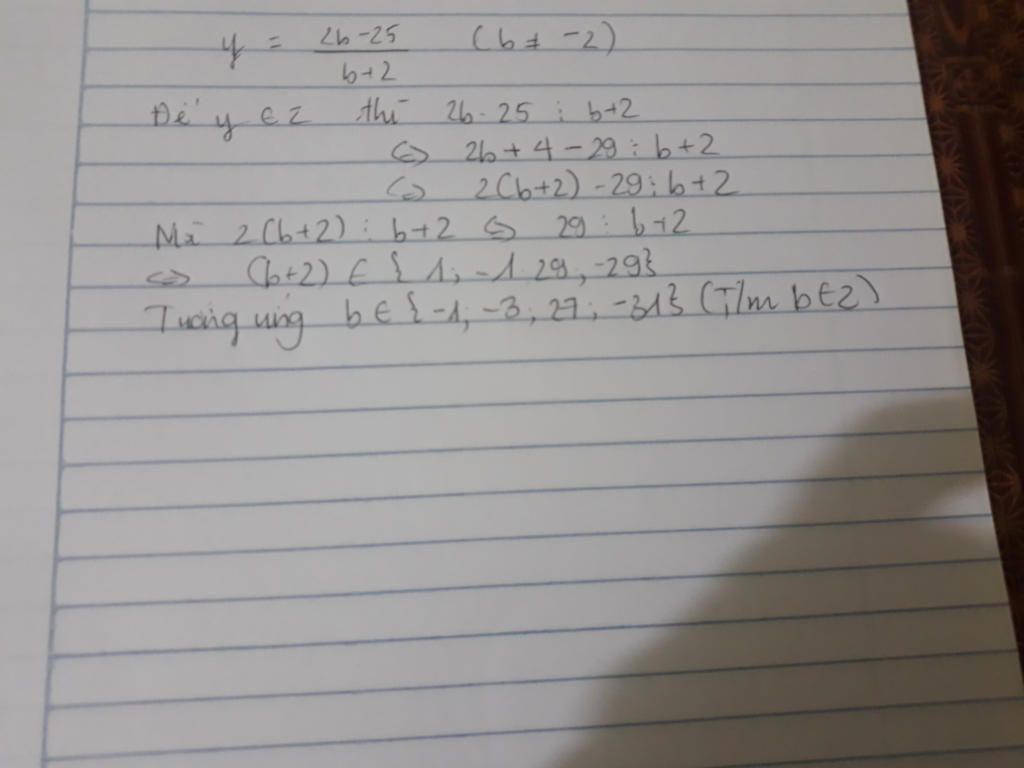 y = \frac{2b-25}{b+2} (b ≠ -2)
Để y ∈ Z thì 2b - 25 ⋮ b+2
<=> 2b + 4 - 29 ⋮ b+2
<=> 2(b+2) - 29 ⋮ b+2
Mà 2(b+2) ⋮ b+2 <=> 29 ⋮ b+2
<=> (b+2) ∈ {1; -1 29, -29}
Tương ứng b ∈ {-1; -3; 27; -31} (T/m b ∈ Z)